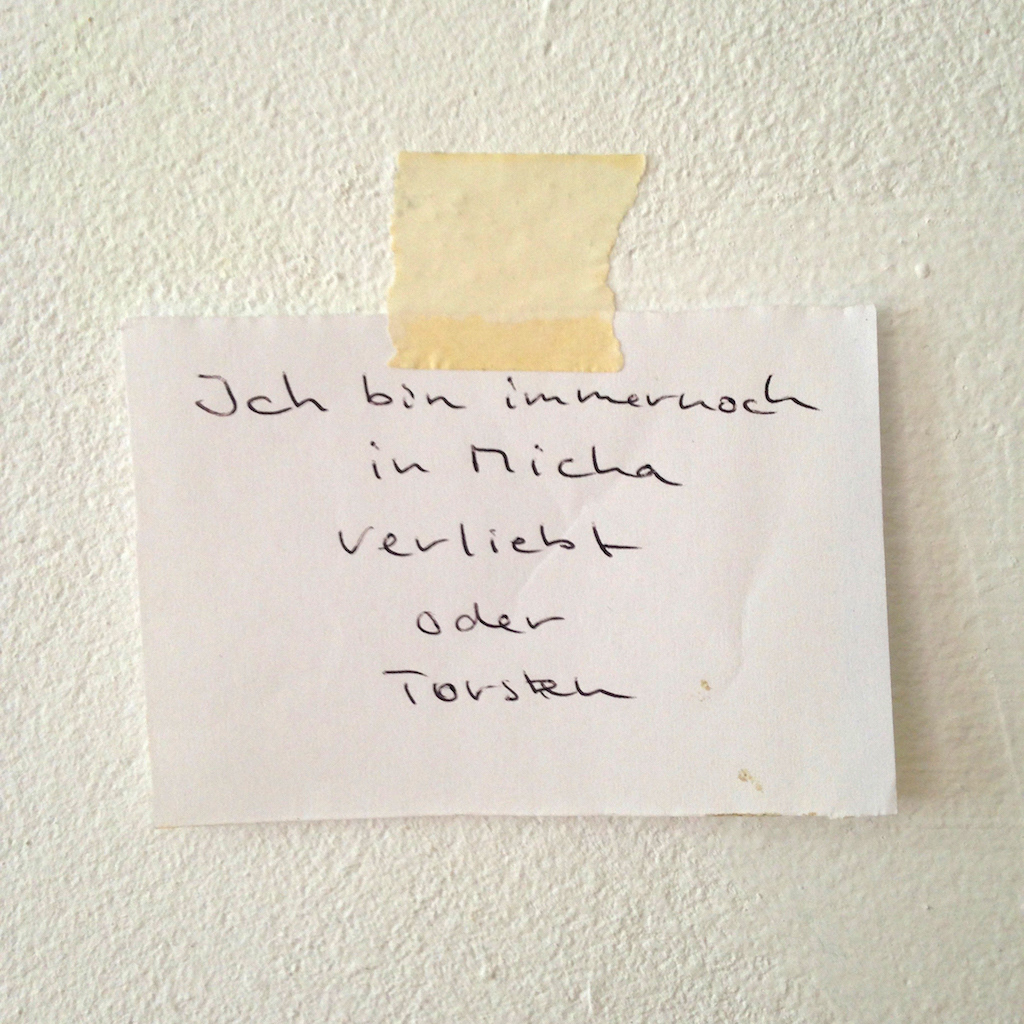 Ich bin immernoch
in Micha
verliebt
oder
Torsten